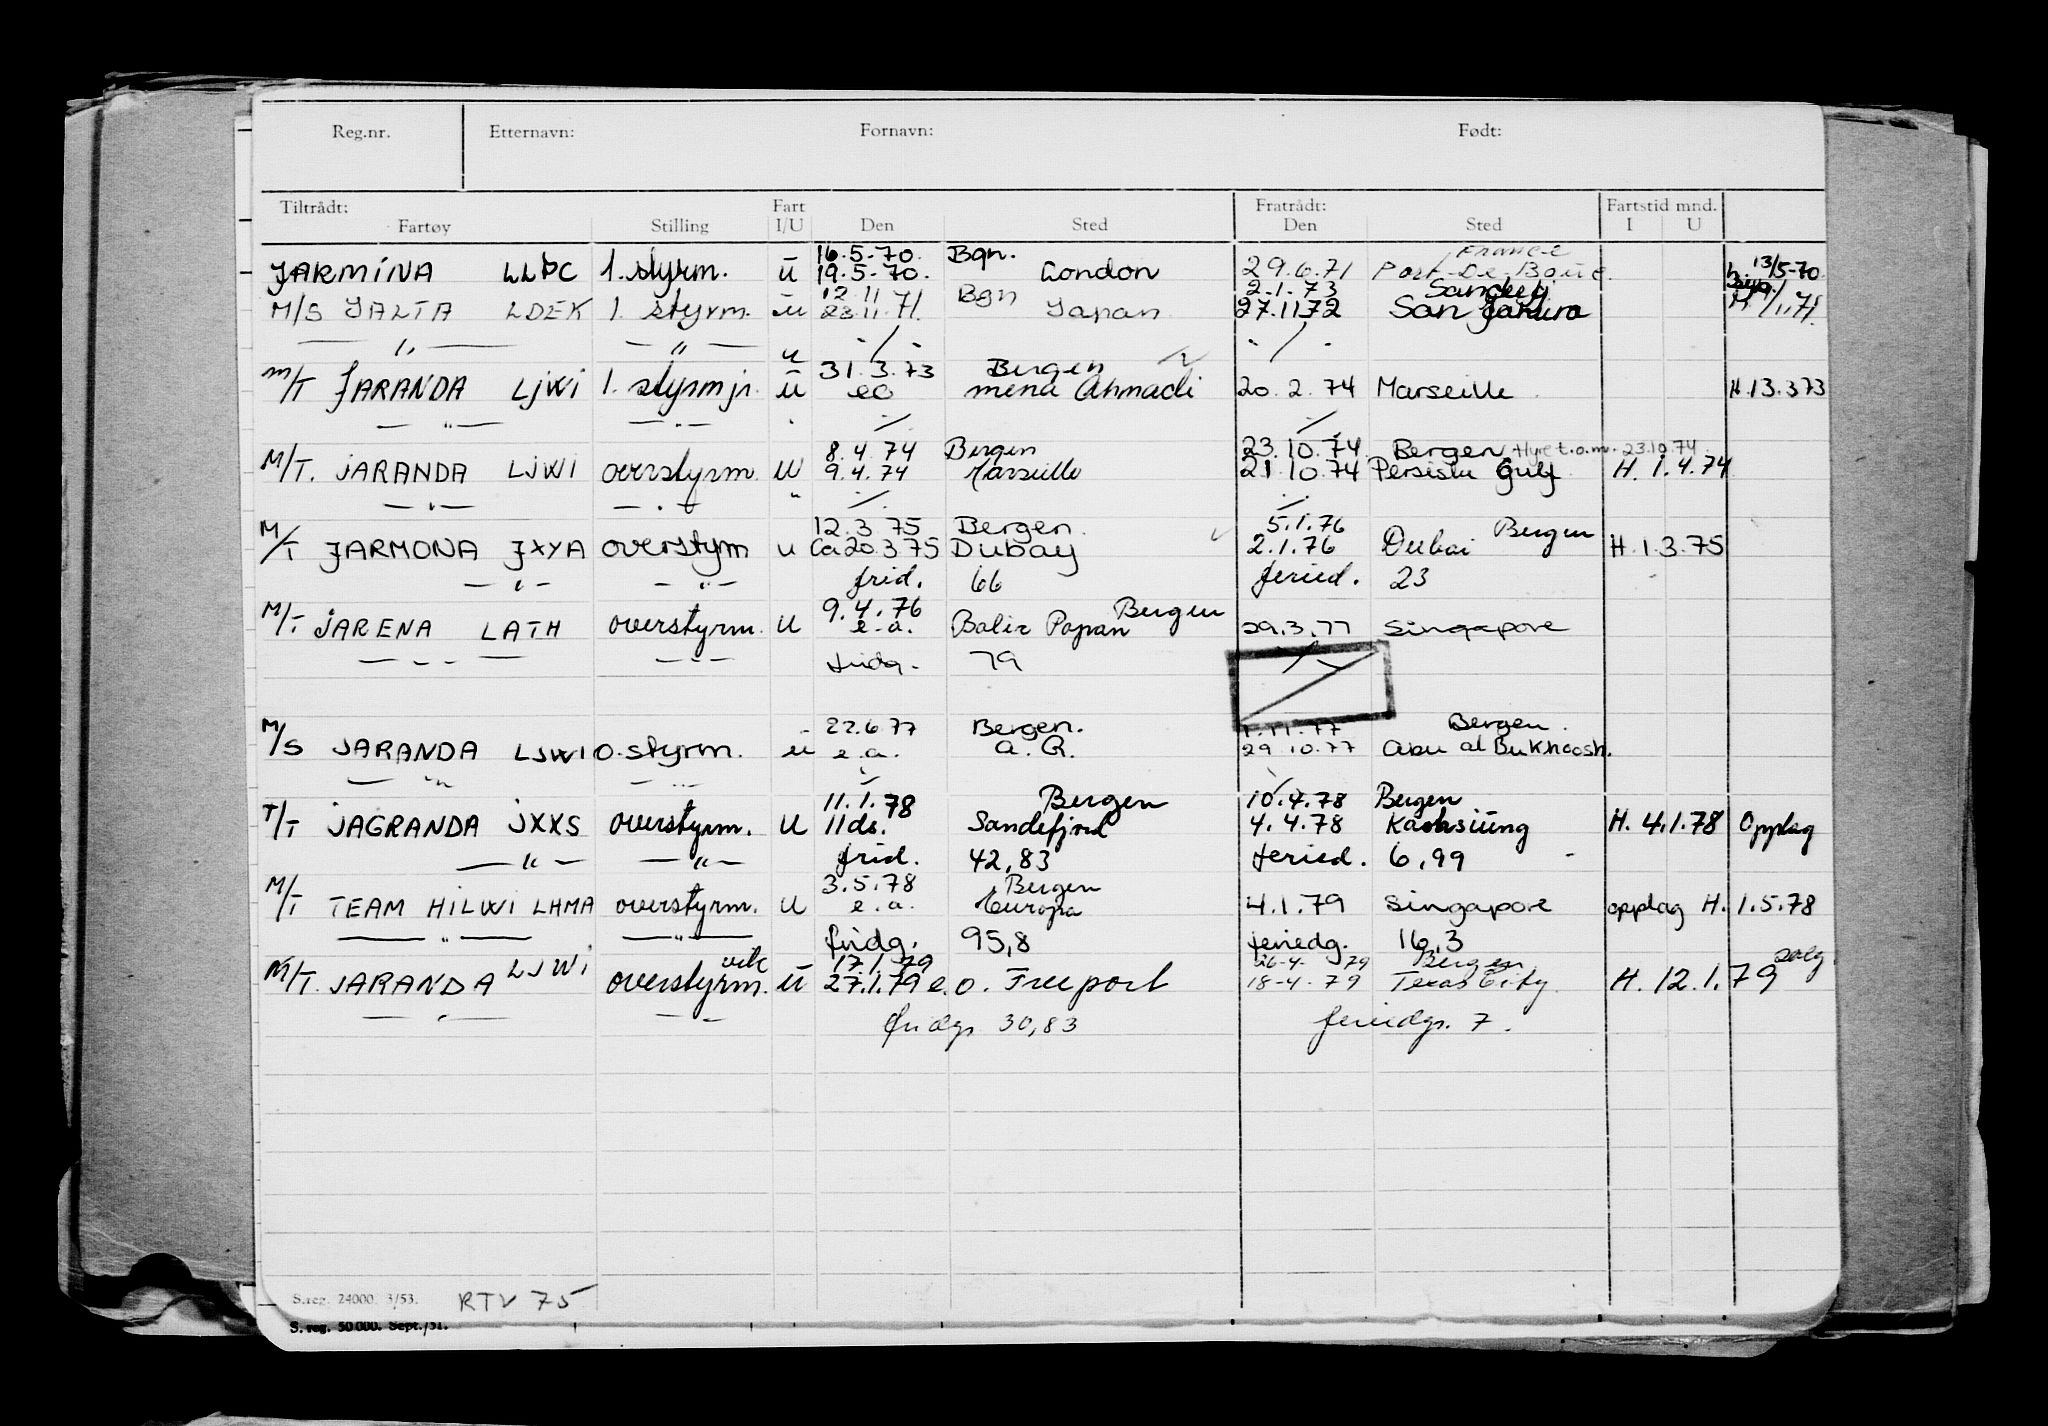 Reg.nr. Etternavn: Fornavn: Født:
Tiltrådt: Fart Fratrådt: Fartstid mnd.
Fartøy Stilling I/U Den Sted Den Sted I U
16.5-70. Bgn. France
JARMINA LLPC 1. styrm. U 19.5-70. London 29.6.71 Port-De-Bouc. 13/5-70.
12.11 Bgn 2.1.73
M/S JALTA LDEK 1. styrm. U 23.11.71. Japan 27.11.72 San
— " — — " — ./. ./.
U 31.3.73 Bergen
M/T JARANDA LJWI 1. styrm jr. U eo mena Ahmadi 20.2.74 Marseille H.13.373
— " — — " — ./. ./.
8.4.74 Bergen 23.10.74 Bergen Hyre t.o.m. 23.10.74.
M/T. JARANDA LJWI overstyrm. U 9.4.74 Marseille 21.10.74 Persiske Gulf H. 1.4.74
— " — — " — " ./. ./.
12.3.75 Bergen. 5.1.76 Bergen
M/T JARMONA JXYA overstyrm U Ca 20.3.75 Dubay 2.1.76 Dubai H.1.3.75
— " — — " — frid. 66 feried. 23
9.4.76 Bergen
M/T JARENA LATH overstyrm. U e.a. Balix Papan 29.3.77 Singapore
— " — — " — fridg. 79
22.6.77 Bergen. 1.11.77 Bergen.
M/S JARANDA LJWI O.styrm. U e.a. A.G. 29.10.77 Abu al Bukhoosh.
— " — — " — ./.
11.1.78 Bergen 10.4.78 Bergen
T/T JAGRANDA JXXS overstyrm. U 11 ds. Sandefjord 4.4.78 Kaohsiung H. 4.1.78 Opplag
— " — — " — frid. 42,83 feried. 6,99
3.5.78 Bergen
M/T TEAM HILWI LHMA overstyrm. U e.a. Europa 4.1.79 Singapore opplag H. 1.5.78
— " — — " — fridg. 95,8 feriedg. 16,3
17.1.79 26-4-79 Bergen salg
M/T. JARANDA LJWI overstyrm. U 27.1.79 e.o. Freeport 18-4-79 Texas City. H. 12.1.79
— " — — " — fridgr 30,83 feriedgr. 7.
S.reg. 24000. 3/53. RTV 75
S. reg. 50 000. Sept./51.